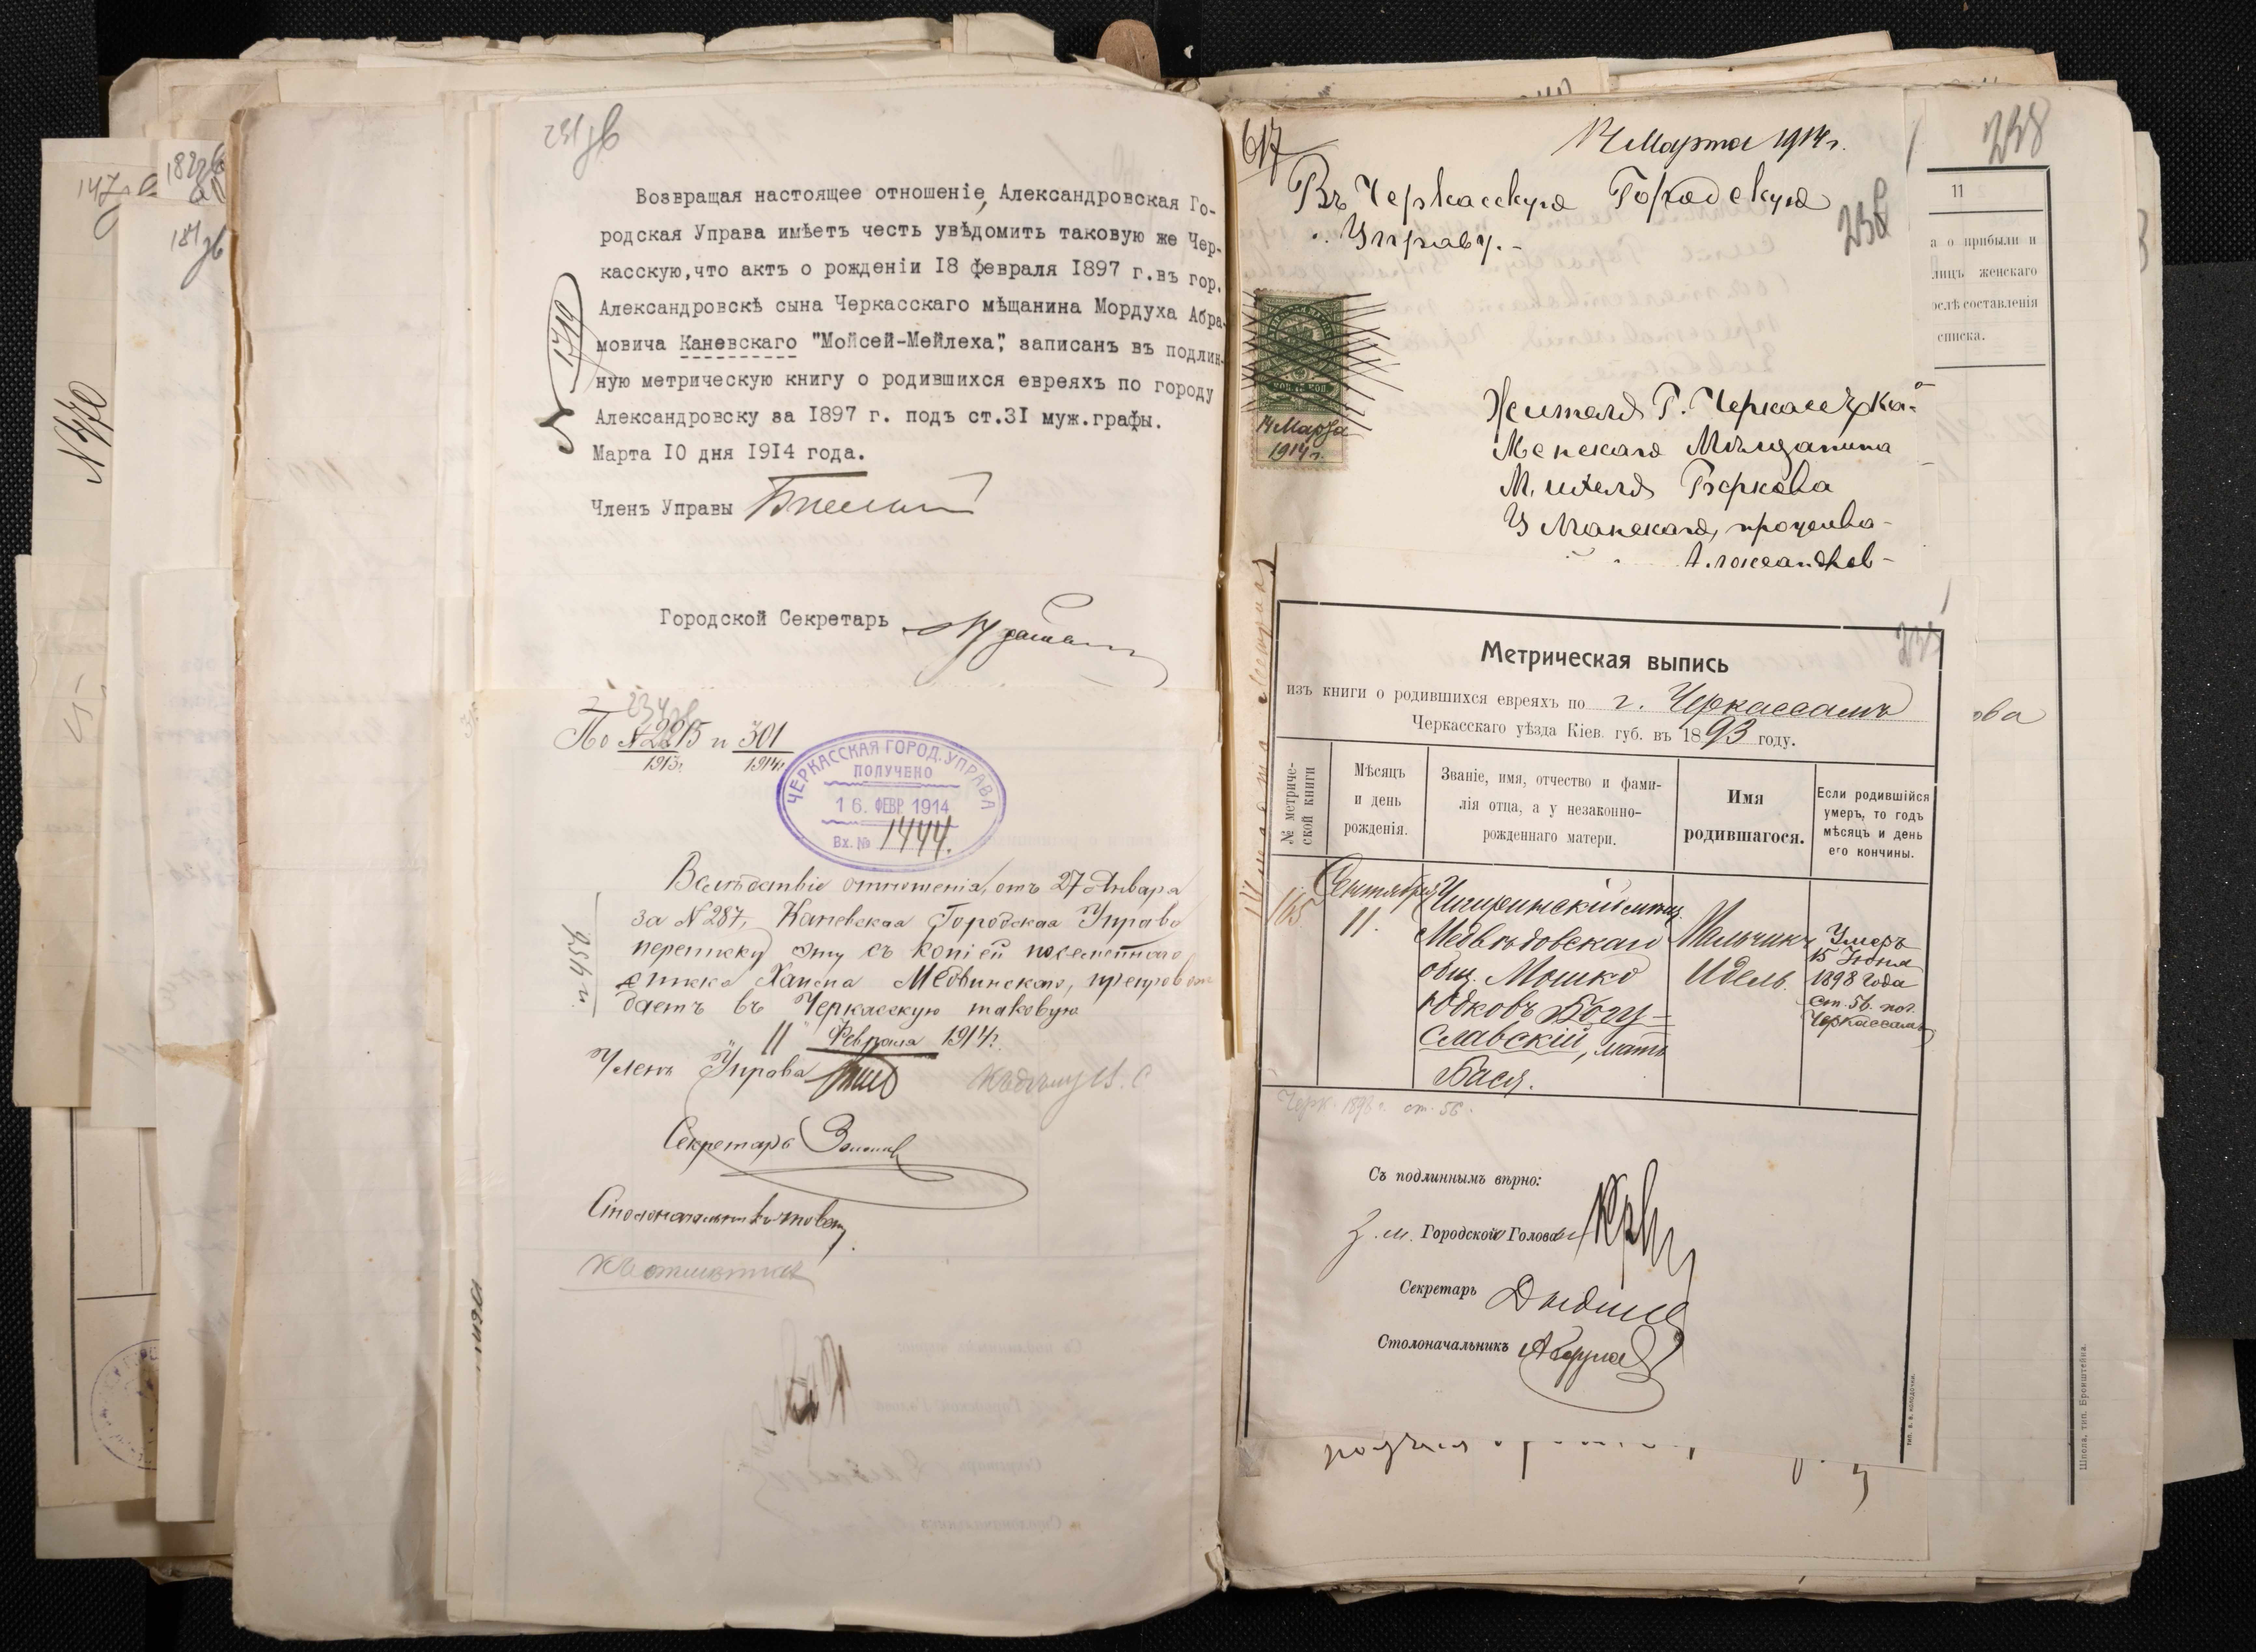 147
182
181
N 470
231 об
Возвращая настоящее отношеніе, Александровская Го-
родская Управа имѣетъ честь увѣдомить таковую же Чер-
касскую,что актъ о рожденіи 18 февраля 1897 г.въ гор.
Александровскѣ сына Черкасскаго мѣщанина Мордуха Абра-
мовича Каневскаго "Мойсей-Мейлеха", записанъ въ подлин-
ную метрическую книгу о родившихся евреяхъ по городу
Александровску за 1897 г. подъ ст.31 муж.графы.
Марта 10 дня 1914 года.
Членъ Управы
Городской Секретарь
По N 2215 и 301
1913г. 1914г.
ЧЕРКАССКАЯ ГОРОД. УПРАВА
ПОЛУЧЕНО
16. ФЕВР 1914
Вх. № 1444.
Вслѣдствіе отношенія, отъ 27 Января
за N 287, Каневская Городская Управа
переписку эту съ копіей посемейнаго
списка Хаима Медвинскаго, препровож
даетъ въ Черкасскую таковую
11 Февраля 1914г.
N 456
Членъ Управы
Секретарь
Столоначальникъ
617
14 Марта 1914г.
238
Въ Черкасскую Городскую
Управу.-
238
14 Марта
1914г.
Жителя Г. Черкассъ, Ка-
менскаго Мѣщанина
Беркова
Уманскаго,
Александров-
11
а о прибыли и
лицъ женскаго
ослѣ составленія
списка.
ова
Метрическая выпись
изъ книги о родившихся евреяхъ по г. Черкассамъ
Черкасскаго уѣзда Кіев. губ. въ 1893 году.
№ метриче-
ской книги
Мѣсяцъ
и день
рожденія.
Званіе, имя, отчество и фами-
лія отца, а у незаконно-
рожденнаго матери.
Имя
родившагося.
Если родившійся
умеръ, то годъ
мѣсяцъ и день
его кончины.
165
Сентября
11.
Чигиринскій мѣщ.
Медвѣдовскаго
общ. Мошко
Юдковъ Богу-
славскій, мать
Бася.
Мальчикъ
Идель.
Умеръ
15 Іюня
1898 года
ст. 56. по г.
Черкассамъ
Черк. 1898 г. ст. 56.
Съ подлиннымъ вѣрно:
З.м. Городской Голова
Секретарь
Столоначальникъ
Шпола, тип. Бронштейна.